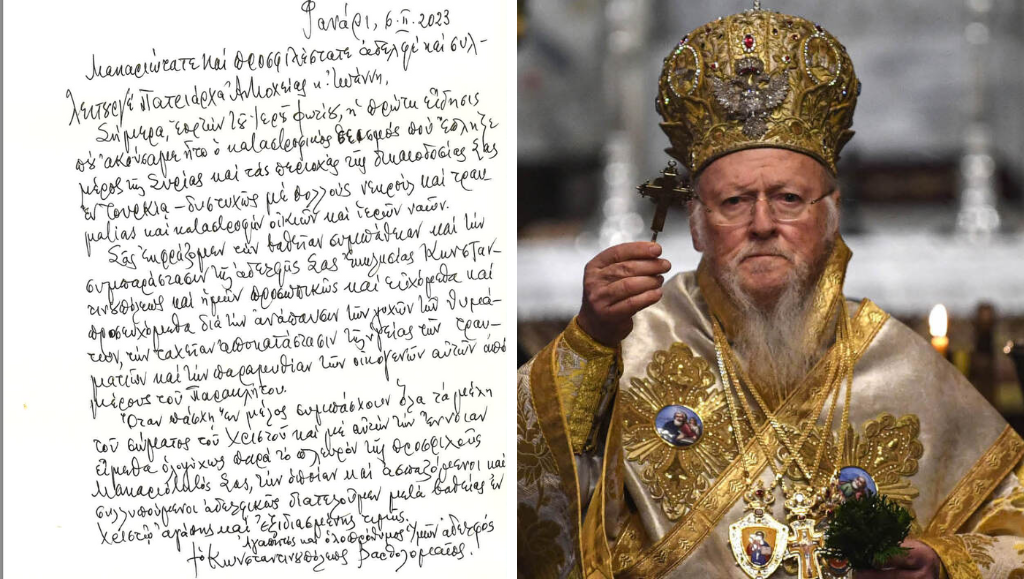 Φανάρι, 6.ΙΙ.2023
Μακαριώτατε καί προσφιλέστατε ἀδελφέ καί συλ-
λειτουργέ Πατριάρχα Ἀντιοχείας κ. Ἰωάννη,
Σήμερα, ἑορτήν τοῦ ἱεροῦ Φωτίου, ἡ πρώτη εἴδησις
πού ἀκούσαμε ἦτο ὁ καταστροφικός σεισμός πού ἔπληξε
μέρος τῆς Συρίας καί τάς περιοχάς τῆς δικαιοδοσίας Σας
ἐν Τουρκίᾳ - δυστυχῶς μέ πολλούς νεκρούς καί τραυ-
ματίας καί καταστροφήν οἰκιῶν καί ἱερῶν ναῶν.
Σᾶς ἐκφράζομεν τήν βαθεῖαν συμπάθειαν καί τήν
συμπαράστασιν τῆς ἀδελφῆς Σας Ἐκκλησίας Κωνσταν-
τινουπόλεως καί ἡμῶν προσωπικῶς καί εὐχόμεθα καί
προσευχόμεθα διά τήν ἀνάπαυσιν τῶν ψυχῶν τῶν θυμά-
των, τήν ταχεῖαν ἀποκατάστασιν τῆς ὑγείας τῶν τραυ-
ματιῶν καί τήν παραμυθίαν τῶν οἰκογενειῶν αὐτῶν ἀπό
μέρους τοῦ Παρακλήτου.
Ὅταν πάσχῃ ἕν μέλος συμπάσχουν ὅλα τά μέλη
τοῦ σώματος τοῦ Χριστοῦ καί μέ αὐτήν τήν ἔννοιαν
εἴμεθα ὁλοψύχως παρά τό πλευρόν τῆς προσφιλοῦς
Μακαριότητός Σας, τήν ὁποίαν καί ἀσπαζόμενοι καί
συλλυπούμενοι ἀδελφικῶς διατελοῦμεν μετά βαθείας ἐν
Χριστῷ ἀγάπης καί ἐξιδιασμένης τιμῆς.
ἀγαπητός καί ὁλοπρόθυμος Ὑμῶν ἀδελφός
† ὁ Κωνσταντινουπόλεως Βαρθολομαῖος.